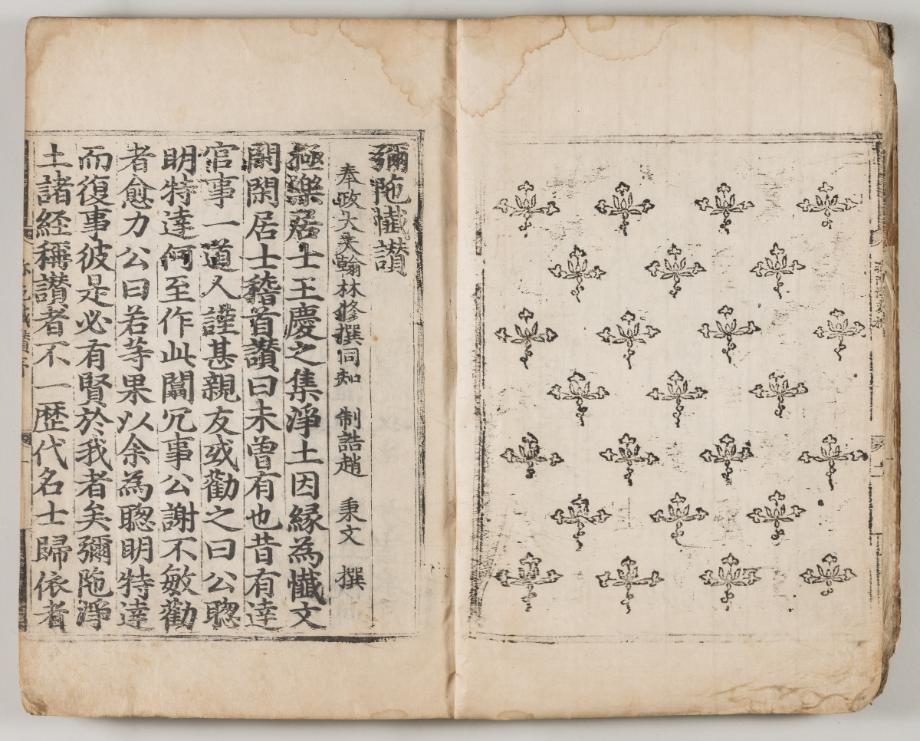 彌陁懺讃
奉政大夫翰林修撰同知 制誥趙 秉文 撰
極樂居士王慶之集淨土因緣為懺文
閑閑居士稽首讃曰未曾有也昔有達
官事一道人謹甚親友或勸之曰公聰
明特達何至作此闒冗事公謝不敏勸
者愈力公曰若等果以余為聰明特達
而復事彼是必有賢於我者矣彌陁淨
土諸經稱讃者不一歷代名士歸依者